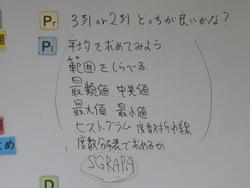 Pr 3列or2列どっちが良いかな？
Pl 平均をもとめてみよう.
範囲をしらべる.
最頻値 中央値
最大値 最小値
ヒストグラム 度数折れ線
度数分布表でもとめるか
SGRAPA
め
D